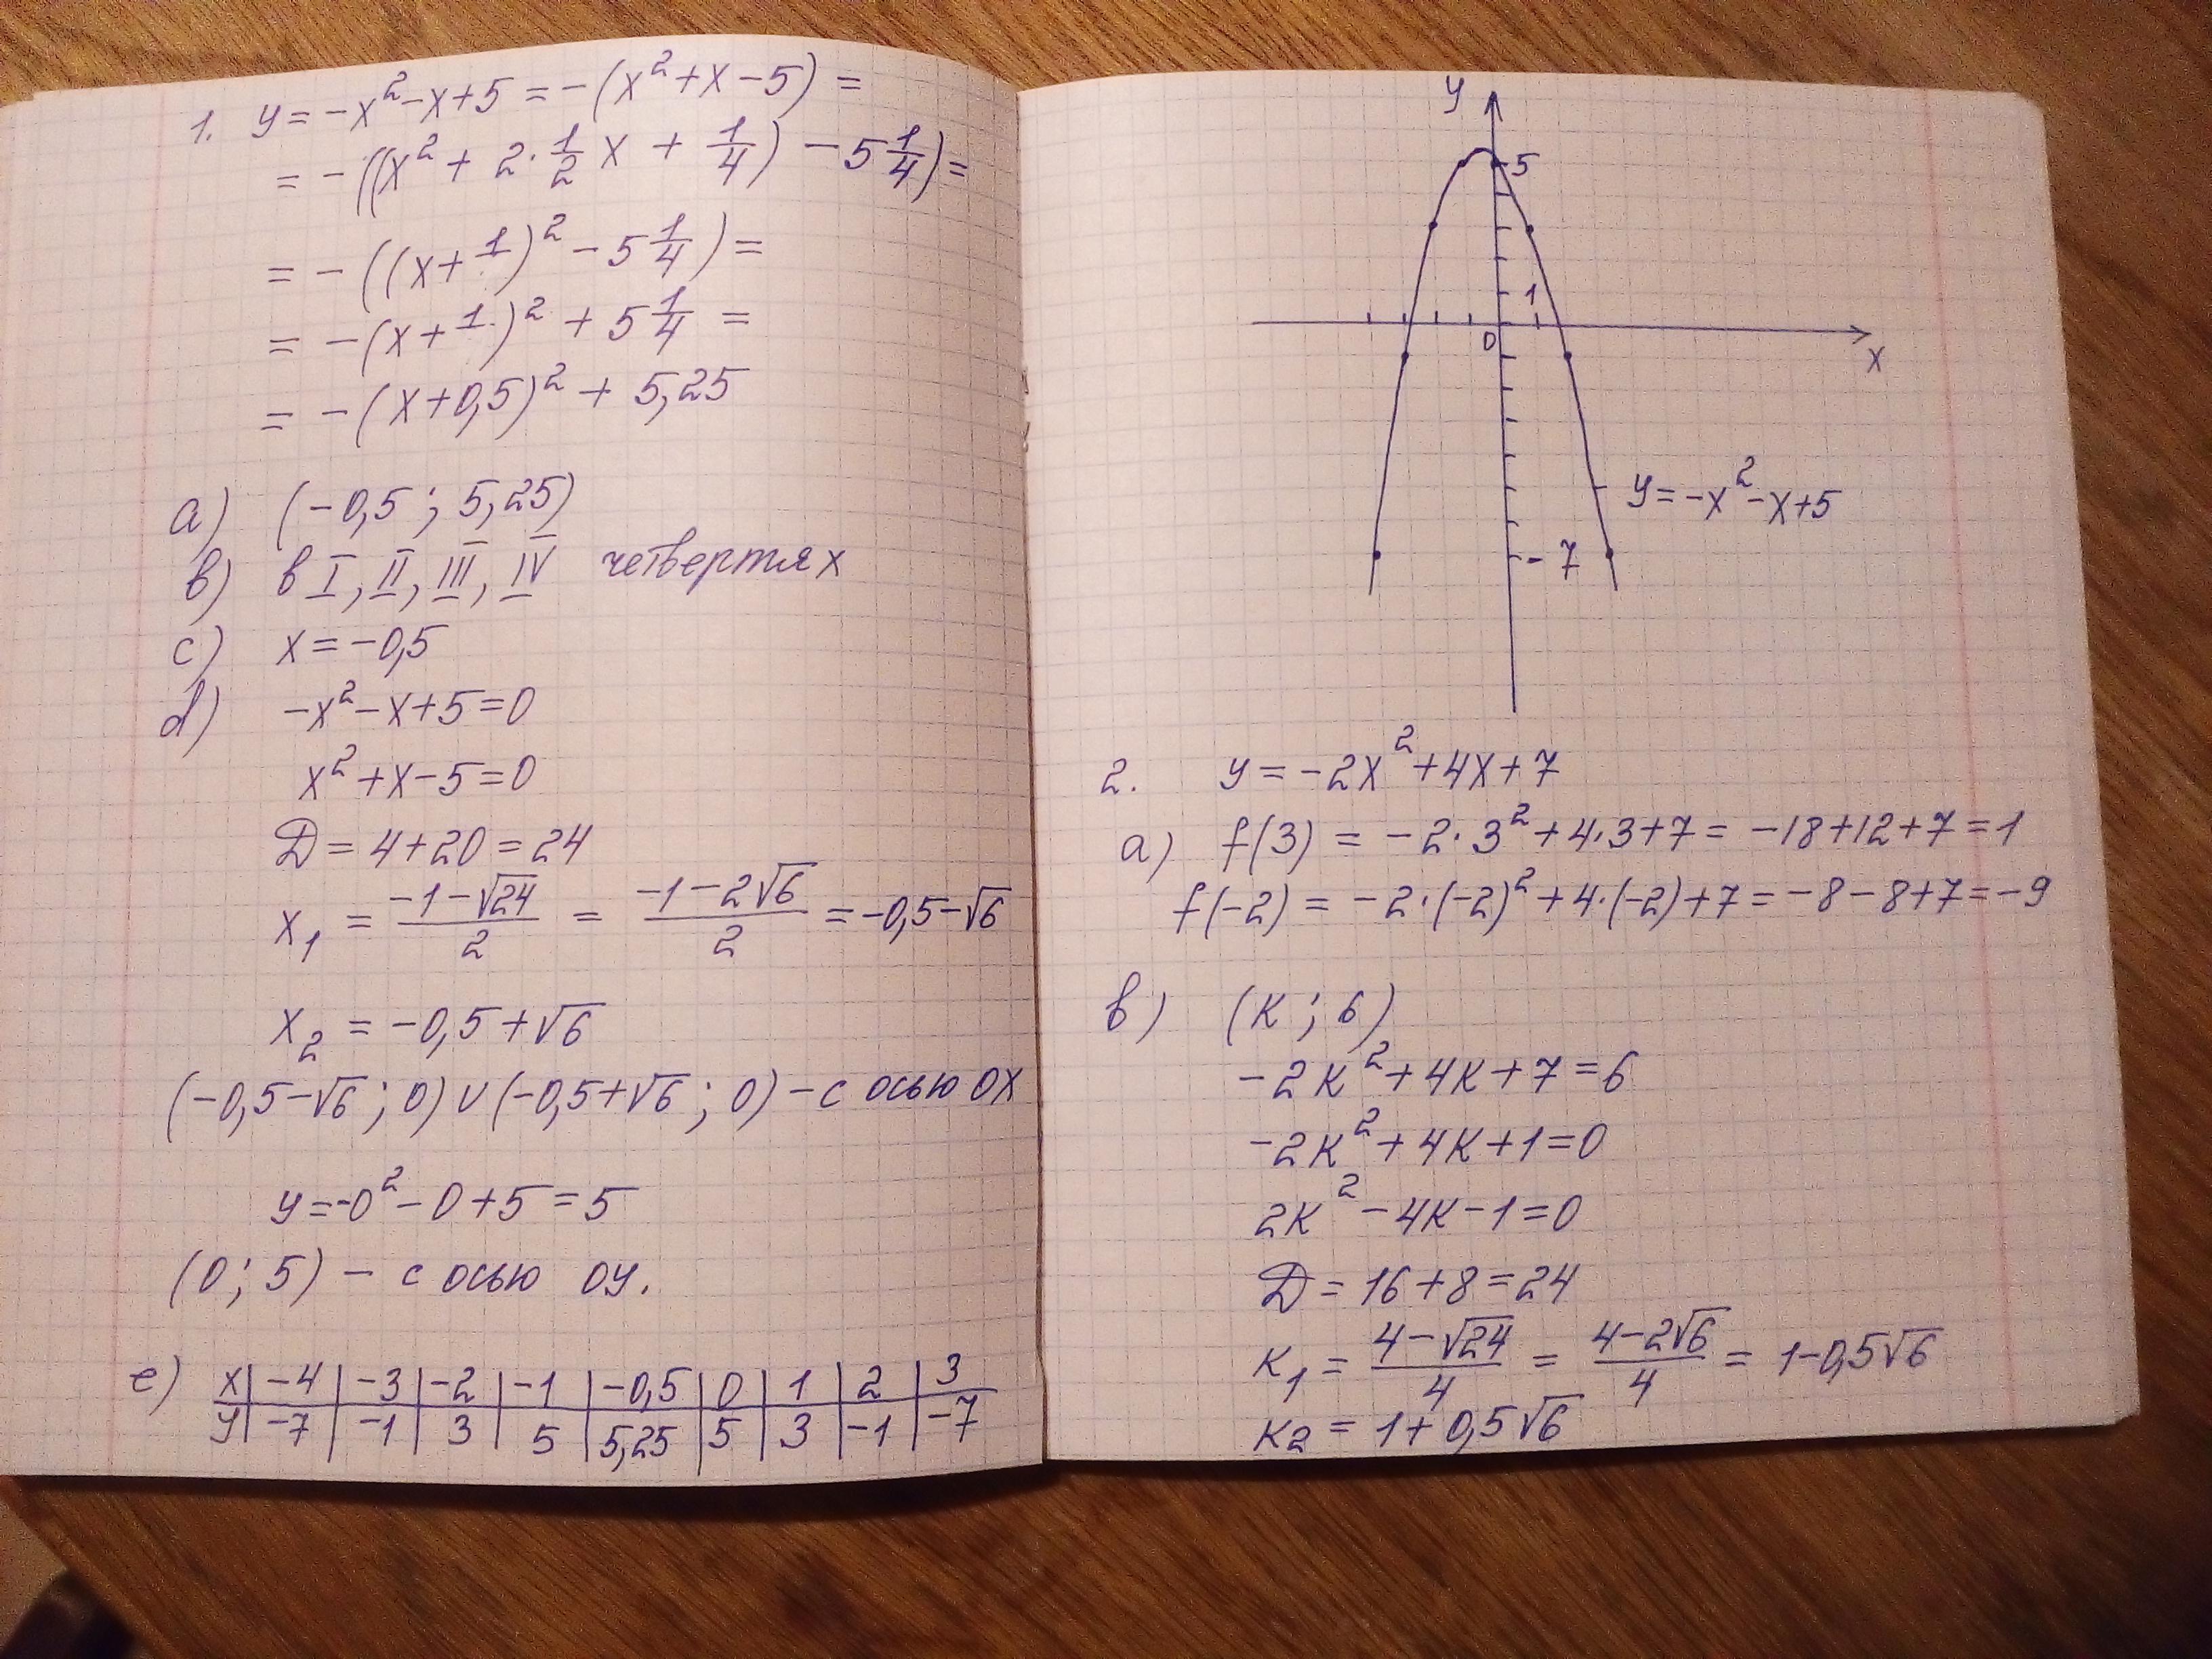 1. y = -x² - x + 5 = -(x² + x - 5) =
= -((x² + 2·1/2 x + 1/4) - 5 1/4) =
= -((x + 1/ )² - 5 1/4) =
= -(x + 1/ )² + 5 1/4 =
= -(x + 0,5)² + 5,25
a) (-0,5 ; 5,25)
b) в I, II, III, IV четвертях
c) x = -0,5
d) -x² - x + 5 = 0
x² + x - 5 = 0
D = 4 + 20 = 24
x₁ = (-1 - √24)/2 = (-1 - 2√6)/2 = -0,5 - √6
x₂ = -0,5 + √6
(-0,5 - √6 ; 0) ∪ (-0,5 + √6 ; 0) - с осью ОХ
y = -0² - 0 + 5 = 5
(0 ; 5) - с осью ОУ.
e) x | -4 | -3 | -2 | -1 | -0,5 | 0 | 1 | 2 | 3
y | -7 | -1 | 3 | 5 | 5,25 | 5 | 3 | -1 | -7
y
5
1
0
x
y = -x² - x + 5
-7
2. y = -2x² + 4x + 7
a) f(3) = -2·3² + 4·3 + 7 = -18 + 12 + 7 = 1
f(-2) = -2·(-2)² + 4·(-2) + 7 = -8 - 8 + 7 = -9
b) (к ; 6)
-2к² + 4к + 7 = 6
-2к² + 4к + 1 = 0
2к² - 4к - 1 = 0
D = 16 + 8 = 24
к₁ = (4 - √24)/4 = (4 - 2√6)/4 = 1 - 0,5√6
к₂ = 1 + 0,5√6